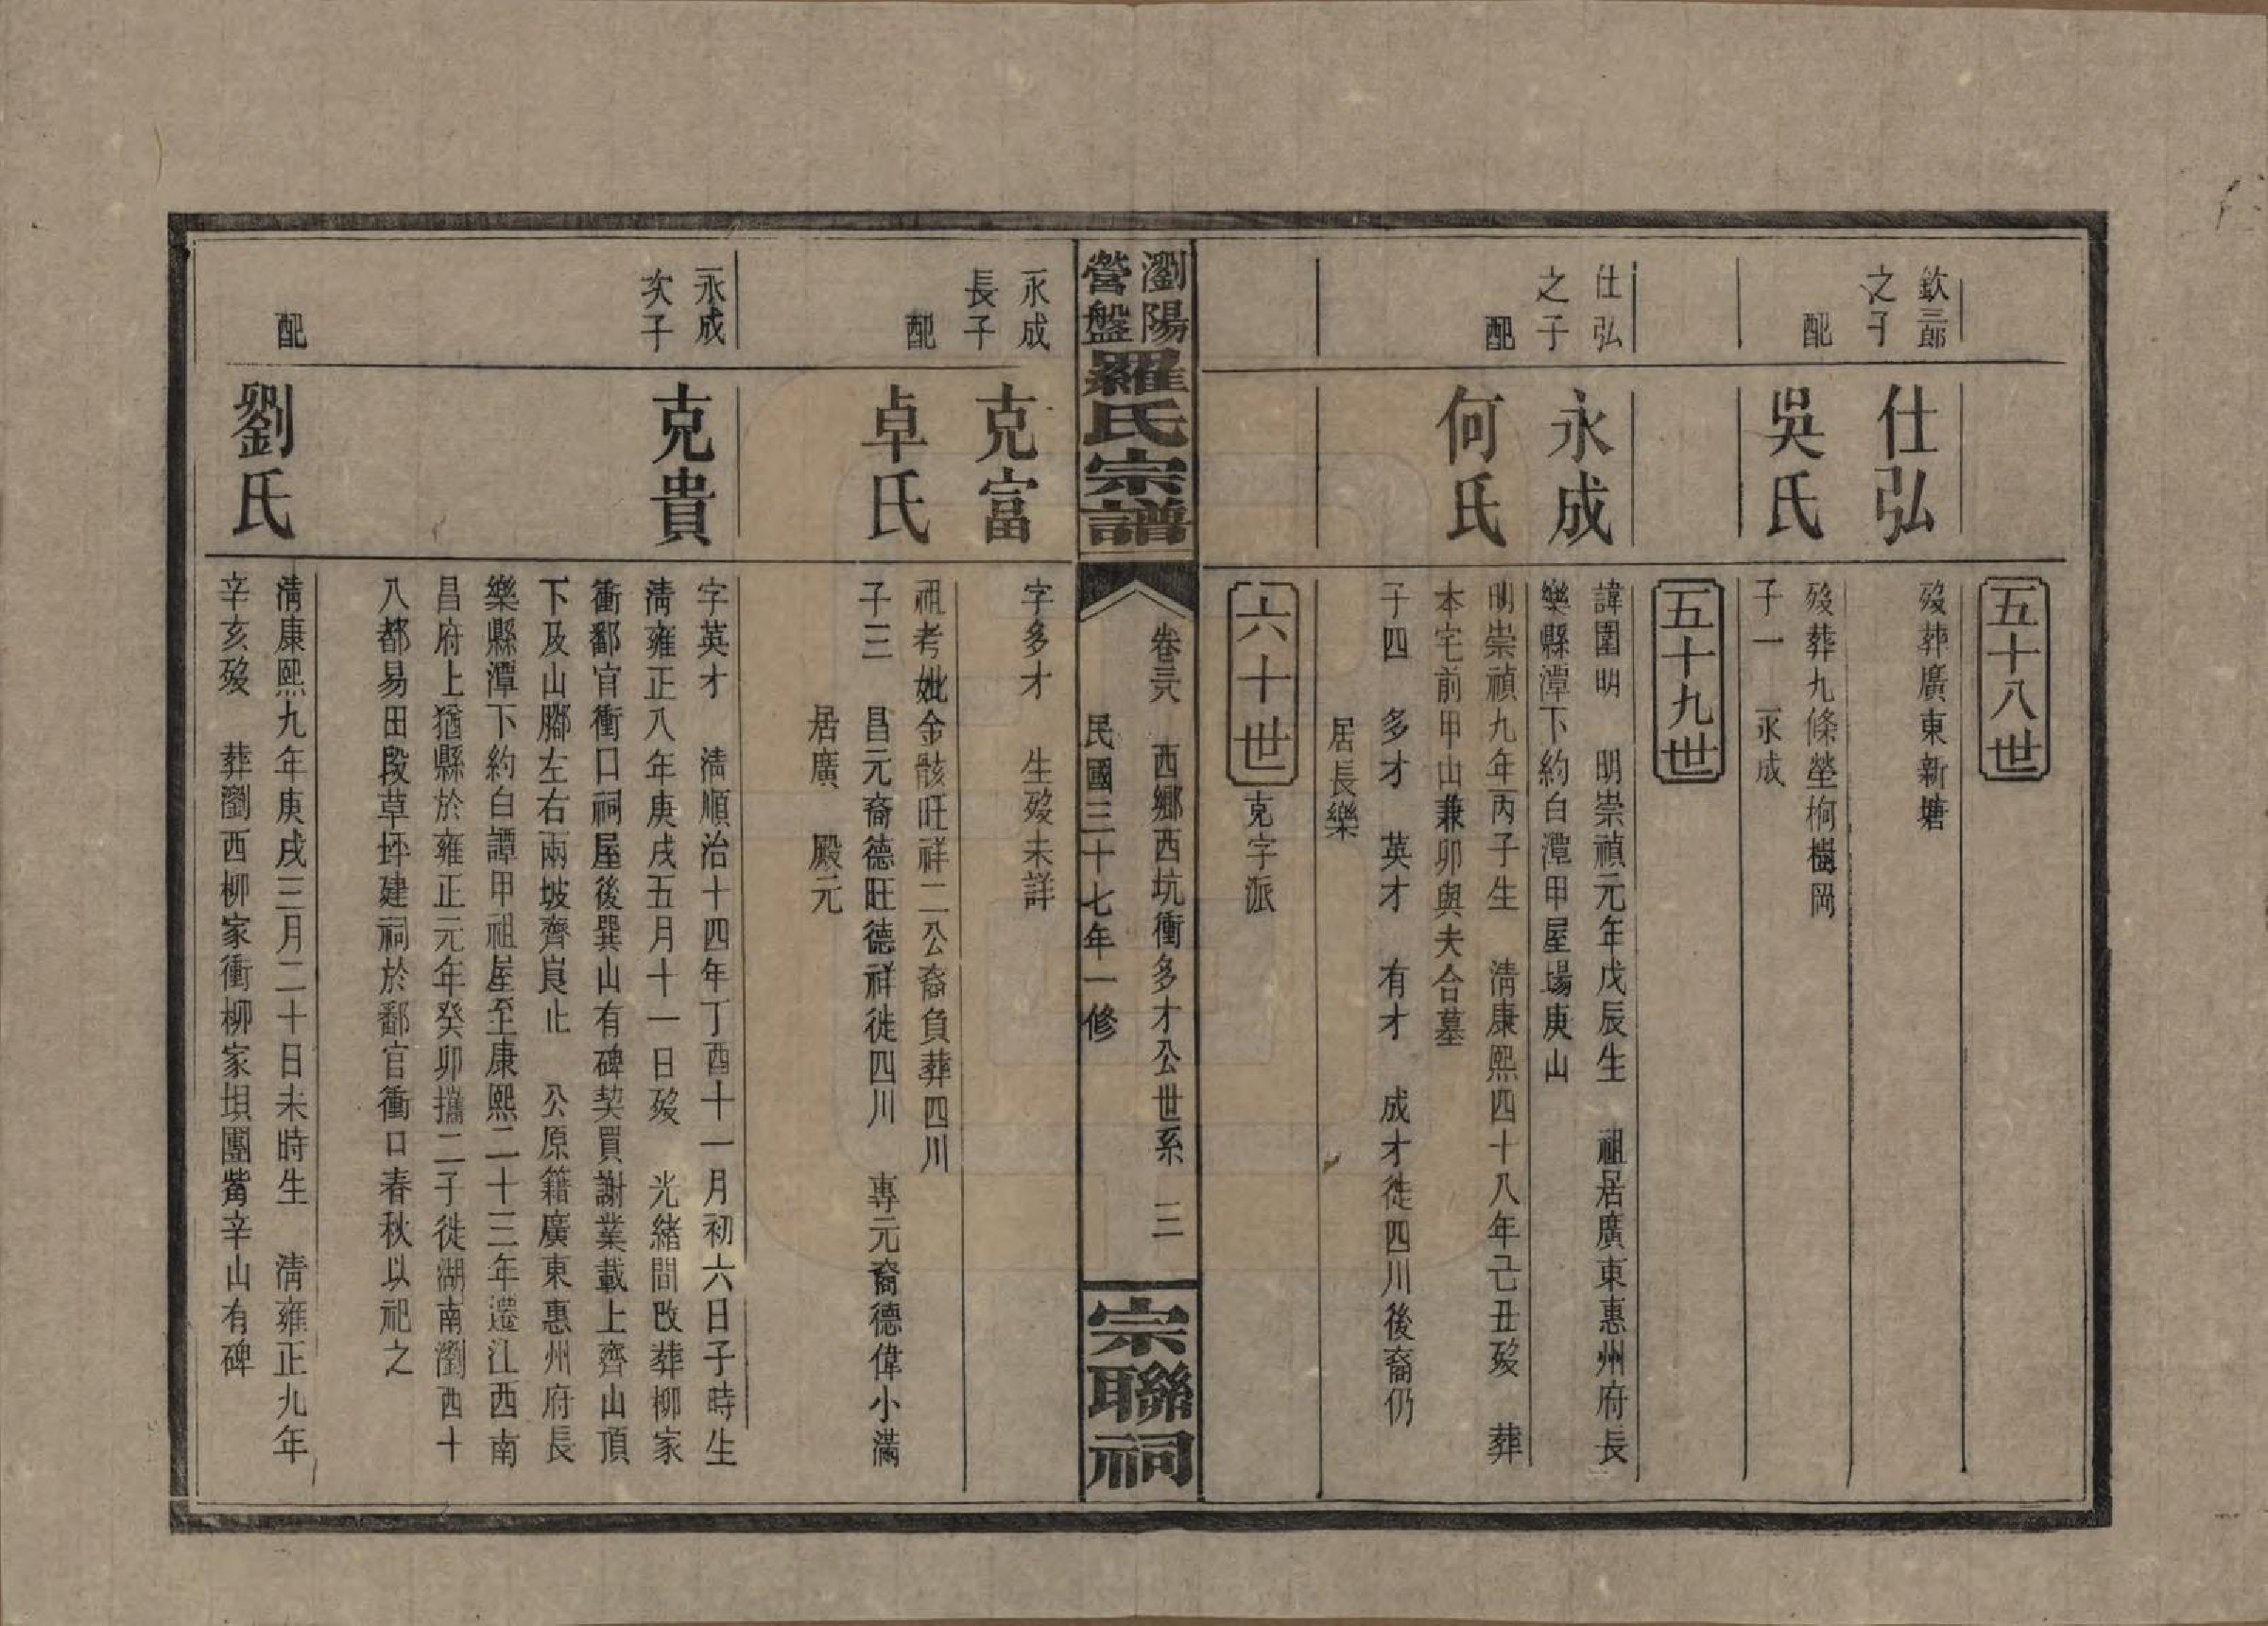 五十八世
欽三郎
之子
仕弘
歿葬廣東新塘
配
吳氏
歿葬九條塋桐樹岡
子一　永成
五十九世
仕弘
之子
永成
諱圍明　明崇禎元年戊辰生　祖居廣東惠州府長
樂縣潭下約白潭甲屋場庚山
配
何氏
明崇禎九年丙子生　清康熙四十八年己丑歿　葬
本宅前甲山兼卯與夫合墓
子四　多才　英才　有才　成才徙四川後裔仍
居長樂
六十世
克字派
瀏陽
營盤
羅氏宗譜
卷三六　西鄉西坑衝多才公世系　三
民國三十七年一修
宗聯祠
永成
長子
克富
字多才　生歿未詳
配
卓氏
祖考妣金骸旺祥二公裔負葬四川
子三　昌元裔德旺德祥徙四川　專元裔德偉小滿
居廣　殿元
永成
次子
克貴
字英才　清順治十四年丁酉十一月初六日子時生
清雍正八年庚戌五月十一日歿　光緒間改葬柳家
衝鄱官衝口祠屋後巽山有碑契買謝業載上齊山頂
下及山腳左右兩坡齊崀止　公原籍廣東惠州府長
樂縣潭下約白譚甲祖屋至康熙二十三年遷江西南
昌府上猶縣於雍正元年癸卯攜二子徙湖南瀏西十
八都易田段草坪建祠於鄱官衝口春秋以祀之
配
劉氏
清康熙九年庚戌三月二十日未時生　清雍正九年
辛亥歿　葬瀏西柳家衝柳家垻團觜辛山有碑